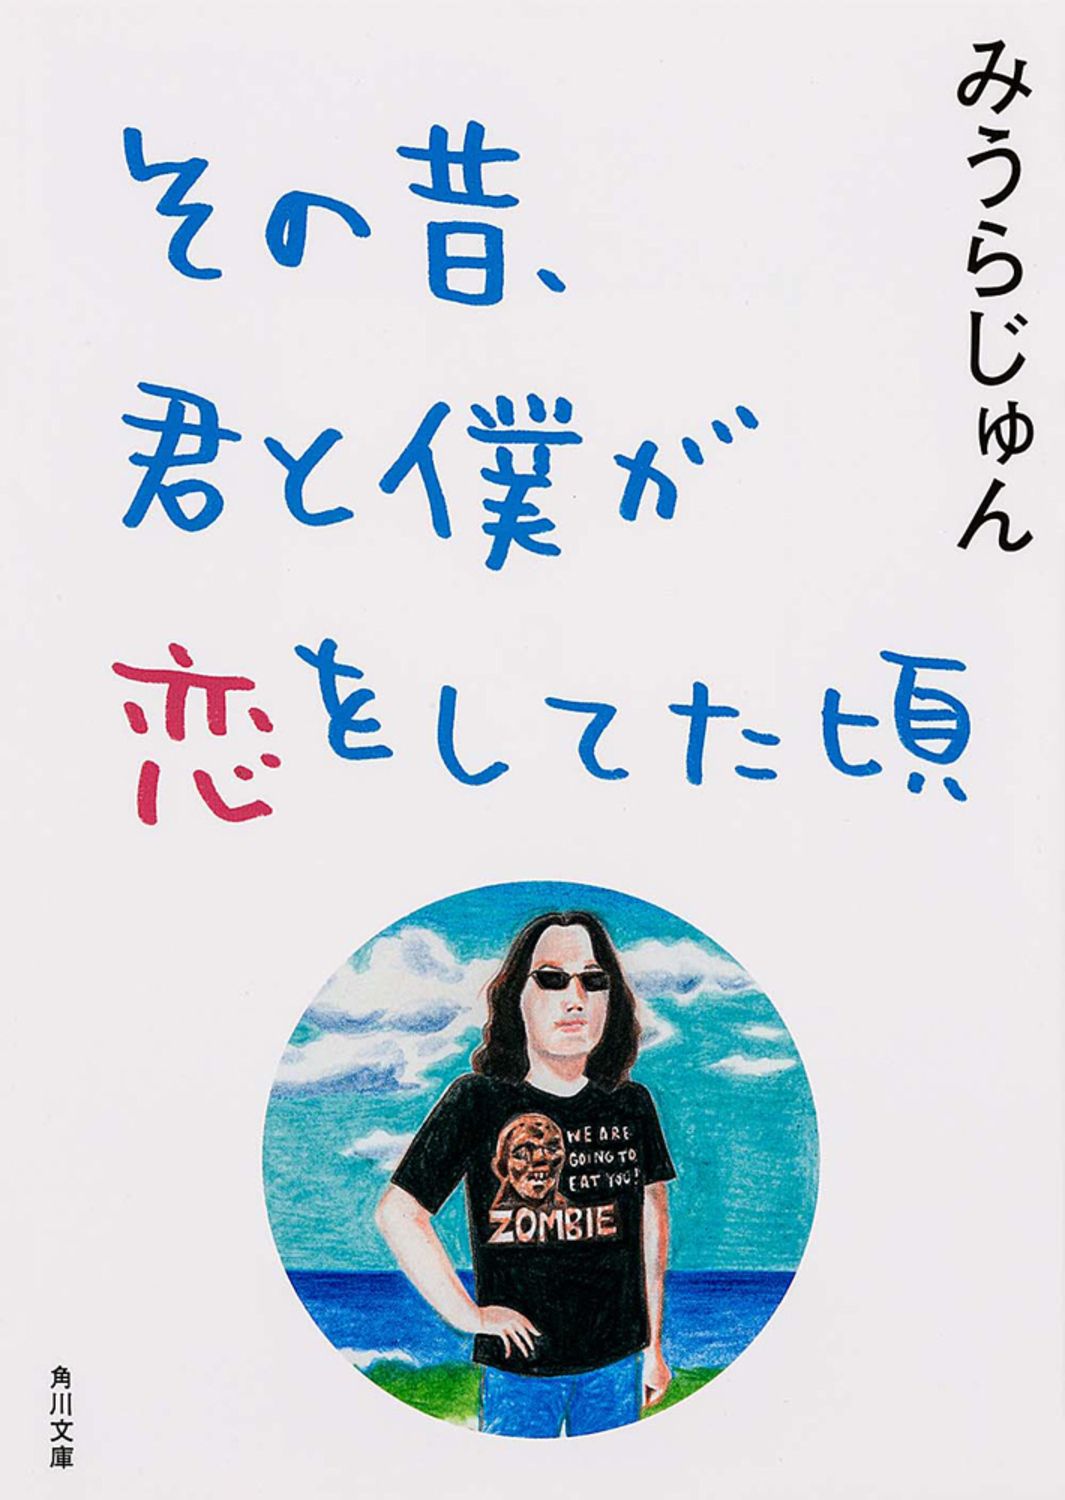 みうらじゅん
その昔、
君と僕が
恋をしてた頃
WE ARE
GOING TO
EAT YOU!
ZOMBIE
角川文庫